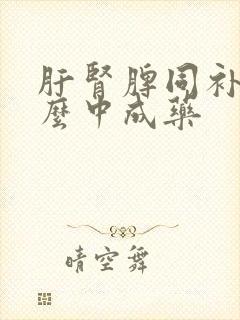 肝肾脾同补
麼中成药
晴空舞